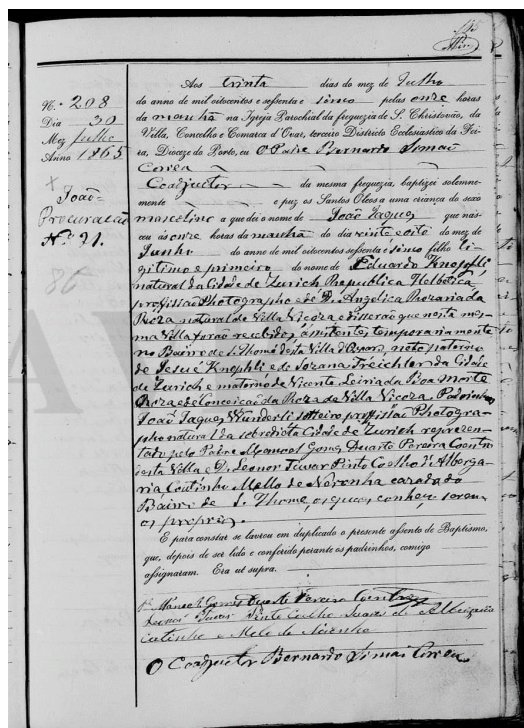 Aos trinta dias do mez de Julho
do anno de mil oitocentos e sessenta e sinco pelas onze horas
da manhã na Igreja Parochial da freguezia de S. Christovão, da
Villa, Concelho e Comarca d'Ovar, terceiro Districto Ecclesiastico da Fei-
ra, Dioceze do Porto, eu O Padre Bernardo Simão
Correa
Coadjuctor da mesma freguezia, baptizei solemne-
mente e puz os Santos Oleos a uma criança do sexo
masculino a que dei o nome de João Jaques que nas-
ceu ás onze horas da manhã do dia vinte e oito do mez de
Junho do anno de mil oitocentos sessenta e sinco filho li-
gitimo e primeiro do nome de Eduardo Knopfli,
natural da Cidade de Zurich Republica Helvetica
profissão Photographo e de D. Angelica Rozaria da
Roza natural de Villa Vicoza e disserão que nesta mes-
ma Villa forão recebidos, assistentes temporariamente
no Bairro de S. Thomé desta Villa d'Ovar, neto paterno
de Jesué Knophli e de Sozana Treichlor da Cidade
de Zurich e materno de Vicente Leiria da Boa Morte
Roza e de Conceicão da Roza de Villa Vicoza. Padrinhos
João Jaques Wunderli solteiro proffissão Photogra-
pho natural da sobredicta Cidade de Zurich reprezen-
tado pelo Padre Manoel Gomes Duarte Pereira Coentro
desta Villa e D. Leonor Tavar Pinto Coelho d'Alberga-
ria, Coutinho Mello de Noronha cazada do
Bairro de S. Thome, os quaes conheço serem
os proprios.
E para constar se lavrou em duplicado o presente assento de Baptismo,
que, depois de ser lido e conferido perante os padrinhos, comigo
assignaram. Era ut supra.
Pe Manoel Gomes Duarte Pereira Coentro
Leonor Pinto Coelho Soares de Albergaria
Coutinho e Melo de Noronha
O Coadjuctor Bernardo Simão Correa
N.º 208
Dia 30
Mez Julho
Anno 1865
João
Procuração
N.º 21.
86